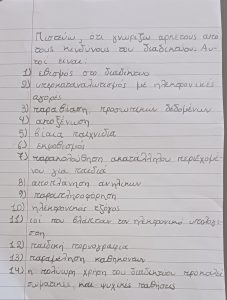 Πιστεύω, ότι γνωρίζω αρκετούς από
τους κινδύνους του διαδικτύου. Αυ-
τοί είναι:
1) εθισμός στο διαδίκτυο
2) υπερκαταναλωτισμός με ηλεκτρονικές
αγορές
3) παραβίαση προσωπικών δεδομένων
4) αποξένωση
5) βίαια παιχνίδια
6) εκφοβισμός
7) παρακολούθηση ακατάλληλου περιεχομέ-
νου για παιδιά
8) αποπλάνηση ανηλίκων
9) παραπληροφόρηση
10) ηλεκτρονικός τζόγος
11) ιοί που βλάπτουν τον ηλεκτρονικό υπολογι-
στη
12) παιδική πορνογραφία
13) παραμέληση καθηκόντων
14) η πολύωρη χρήση του διαδικτύου προκαλεί
σωματικές και ψυχικές παθήσεις